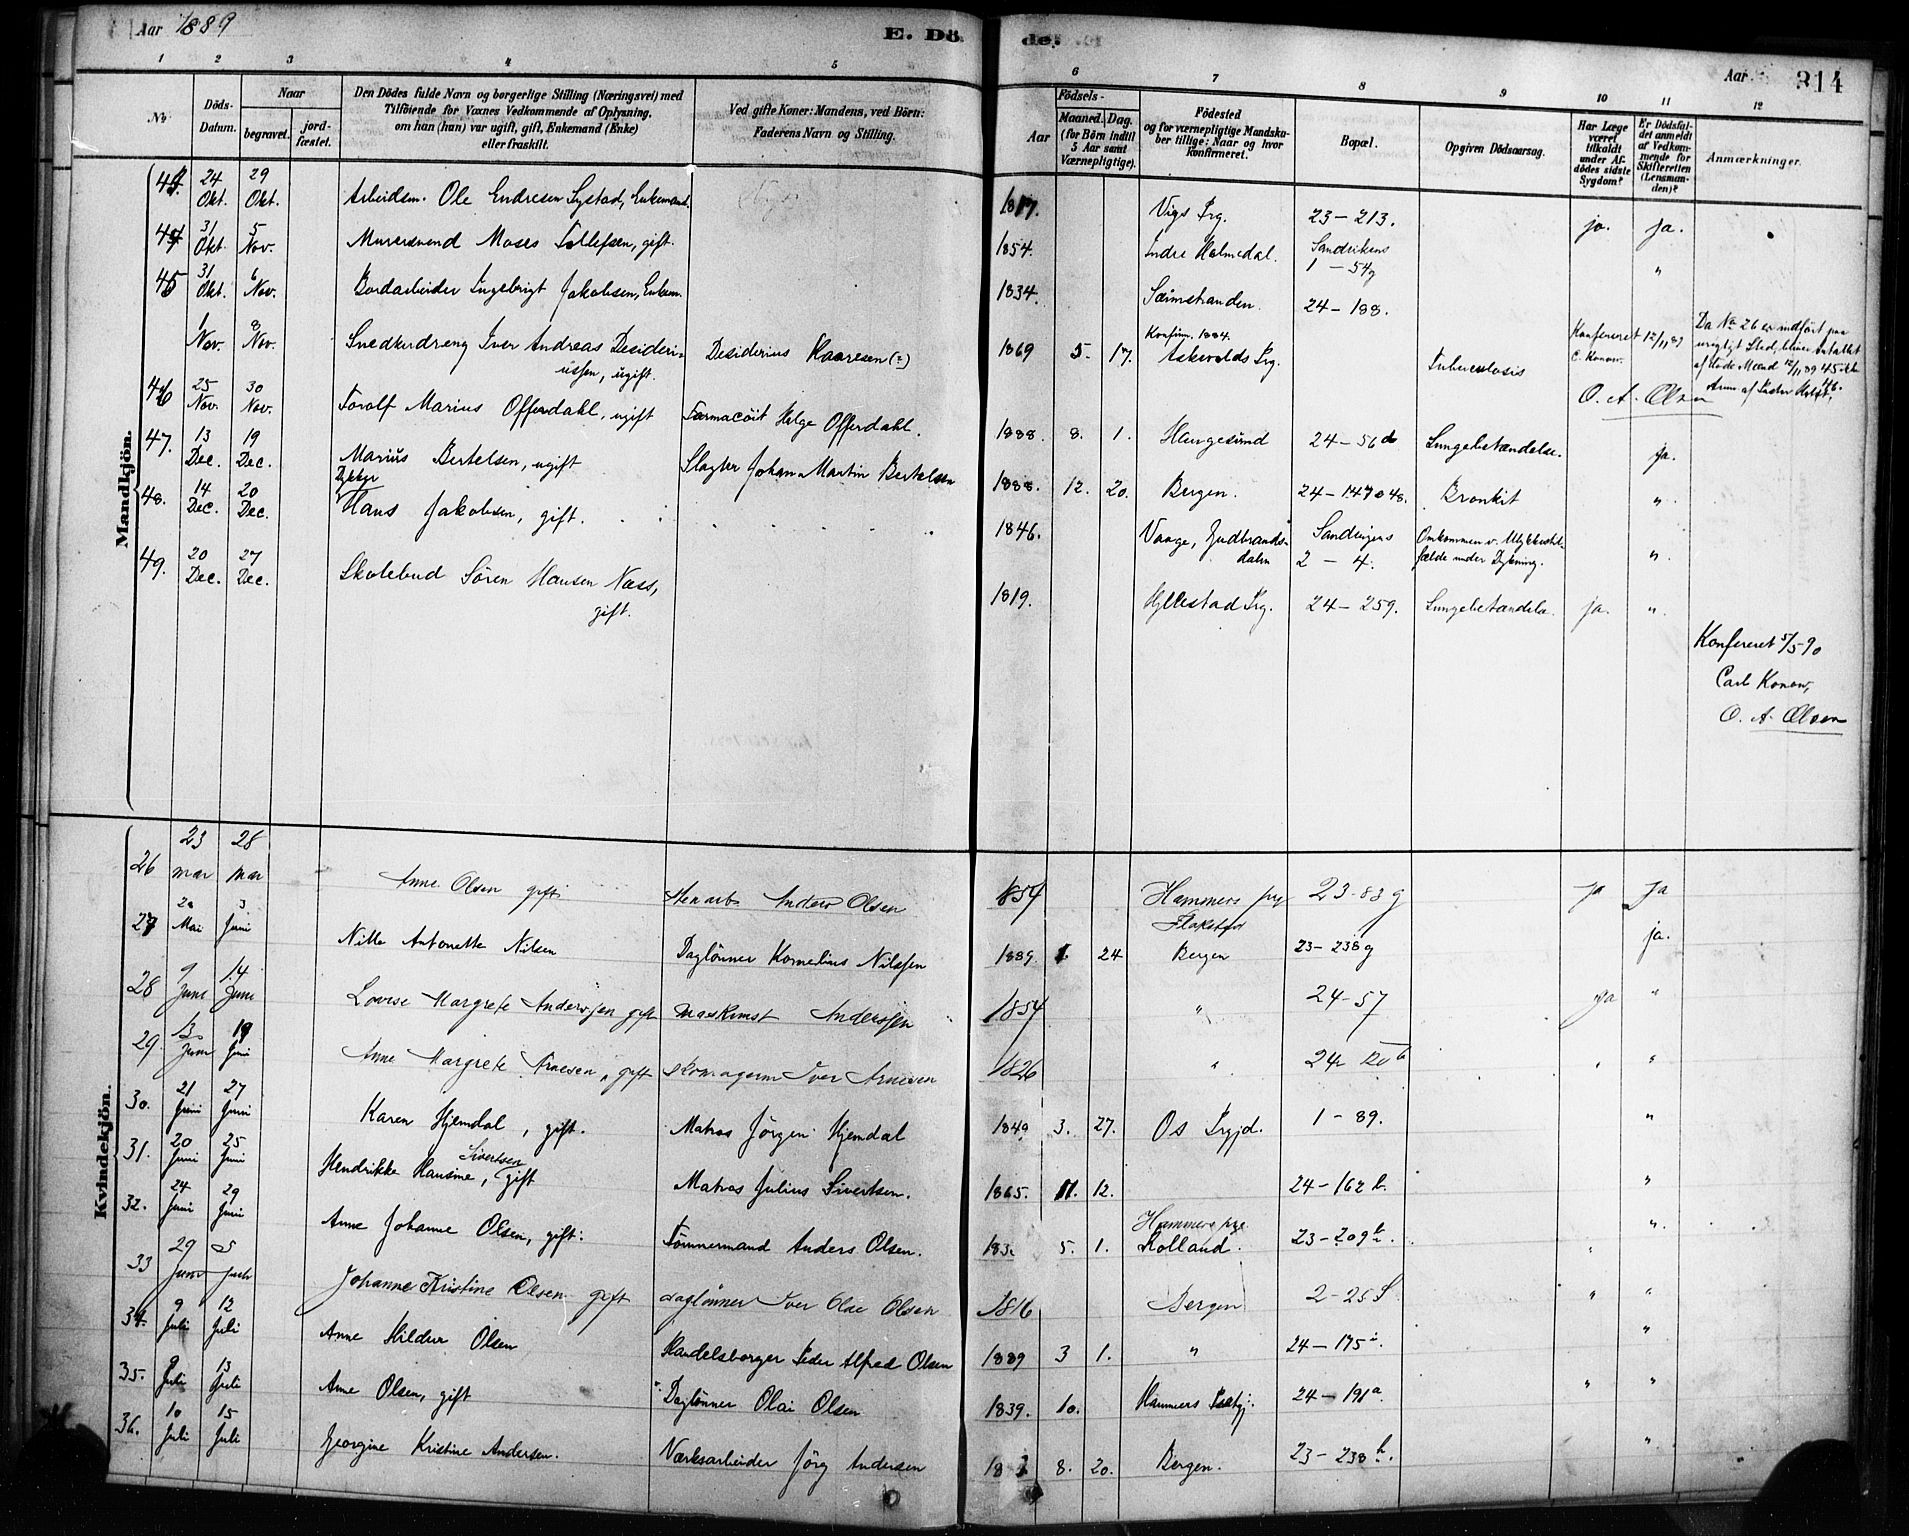 Aar 1889
E. Dö
de.
Aar
314
1 2 3 4 5 6 7 8 9 10 11 12
No
Döds-Datum.
Naar
begravet.
jord-fæstet.
Den Dödes fulde Navn og borgerlige Stilling (Næringsvei) med
Tilföiende for Voxnes Vedkommende af Oplysning,
om han (hun) var ugift, gift, Enkemand (Enke)
eller fraskilt.
Ved gifte Koner: Mandens, ved Börn:
Faderens Navn og Stilling.
Födsels-
Aar
Maaned. Dag.
(for Börn indtil
5 Aar samt
Værnepligtige).
Födested
og for værnepligtige Mandska-
ber tillige: Naar og hvor
Konfirmeret.
Bopæl.
Opgiven Dödsaarsag.
Har Læge
været
tilkaldt
under Af-
dödes sidste
Sygdom?
Er Dödsfal-
det anmeldt
af Vedkom-
mende for
Skifteretten
(Lensman-
den)?
Anmærkninger.
Mandkjön.
24 Okt. 29 Okt. Arbeidsm. Ole Endresen Systad, Enkemand. 1817. Vigs Prg. 23-213. ja. ja.
31 Okt. 5 Nov. Murersvend Moses Tollefsen, gift. 1854. Indre Holmedal. Sandvikens 1-54g "
45 31 Okt. 6 Nov. Bordarbeider Ingebrigt Jakobsen, Enkem. 1834. Sæimstranden. 24-188.
1 Nov. 8 Nov. Snedkerdreng Iver Andreas Desideri-
ussen, ugift. Desiderius Kaaresen (?) 1869 5. 17. Konfirm. 1884. Askevolds Prg. Tuberculosis Konfereret 12/11 89 C. Konow. O. A. Olsen
Da No 26 er indført paa
urigtigt Sted, bliver Antallet
af døde Mænd 12/11 89 45 ikke
46.
46 25 Nov. 30 Nov. Torolf Marius Offerdahl, ugift Farmacöit Helge Offerdahl. 1888. 8. 1. Haugesund 24-56 d Lungebetændelse. ja.
47. 13 Dec. 19 Dec. Marius Bertelsen, ugift Slagter Johan Martin Bertelsen 1888. 12. 20. Bergen. 24-147 o 48. Bronkit "
48. 14 Dec. 20 Dec. Dykker
Hans Jakobsen, gift. 1846. Vaage, Gudbrands-
dalen Sandvigens 2-4. Omkommen v. Ulykkestil-
fælde under Dykning. "
49. 20 Dec. 27 Dec. Skolebud Sören Hansen Næss,
gift. 1819. Hyllestad Prg. 24-259. Lungebetændelse ja. "
Konfereret 5/5 90
Carl Konow,
O. A. Olsen
Kvindekjön.
26 23 mar 28 mar Anne Olsen gift Anders Olsen 1854 Hammers prg 23-83 g ja ja
27 Mai 3 Juni Nille Antonette Nilsen Daglönner Kornelius Nilssen 1889. 24 Bergen 23-238 g ja.
28 9 Juni 14 Juni Lovise Margrete Anderssen gift maskinist Anderssen 1854 " 24-57 ja "
29. 13 Juni 19 Juni Anne Margrete Arnesen, gift Iver Arnesen 1826 " "
30. 21 Juni 27 Juni Karen Hjemdal, gift. Matros Jörgen Hjemdal 1849 3. 27. Os Prgjd. 1-89. "
31. 20 Juni 25 Juni Hendrikke Hansine Sivertsen, gift Matros Julius Sivertsen. 1865. 11. 12. 24-162 b. "
32. 24 Juni 29 Juni Anne Johanne Olsen, gift. Tömmermand Anders Olsen. 5. 1. Hammers prg. 23-209 b. "
33 29 Juni 5 Juli Johanne Kristine Olsen gift daglönner Iver Olai Olsen 1816 Bergen " "
34. 9 Juli 12 Juli Anne Hildur Olsen Handelsborger Peder Alfred Olsen 1889 3 1. " 24-175 i. "
35. 9 Juli 13 Juli Anne Olsen, gift Daglönner Olai Olsen 1839. 10. Hammers 24-191 a. " "
36. 10 Juli 15 Juli Georgine Kristine Andersen. Værksarbeider Jörg Andersen 8. 20. Bergen. 23-238 h. "